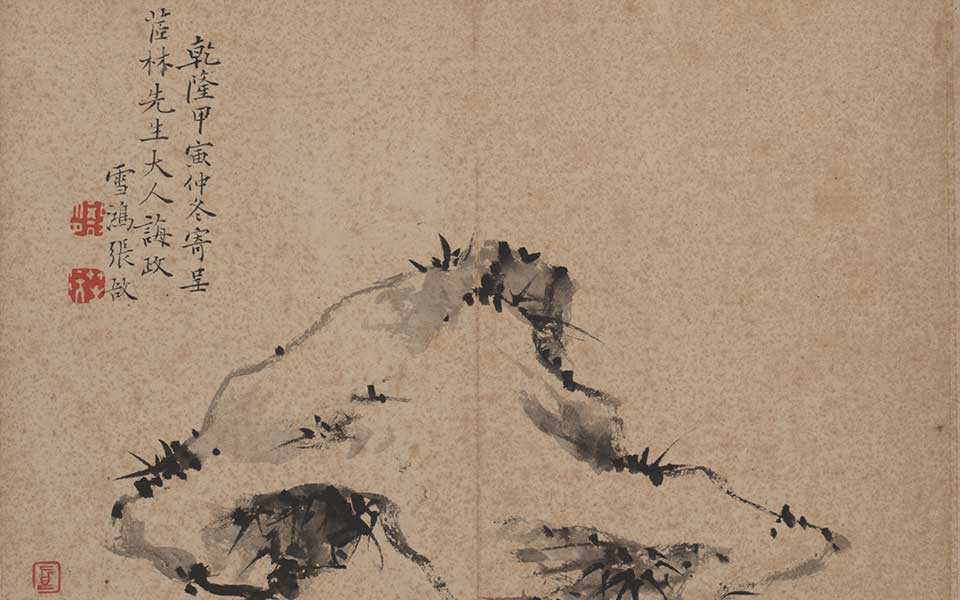 乾隆甲寅仲冬寄呈
蓝林先生大人誨政
雪鴻張敔